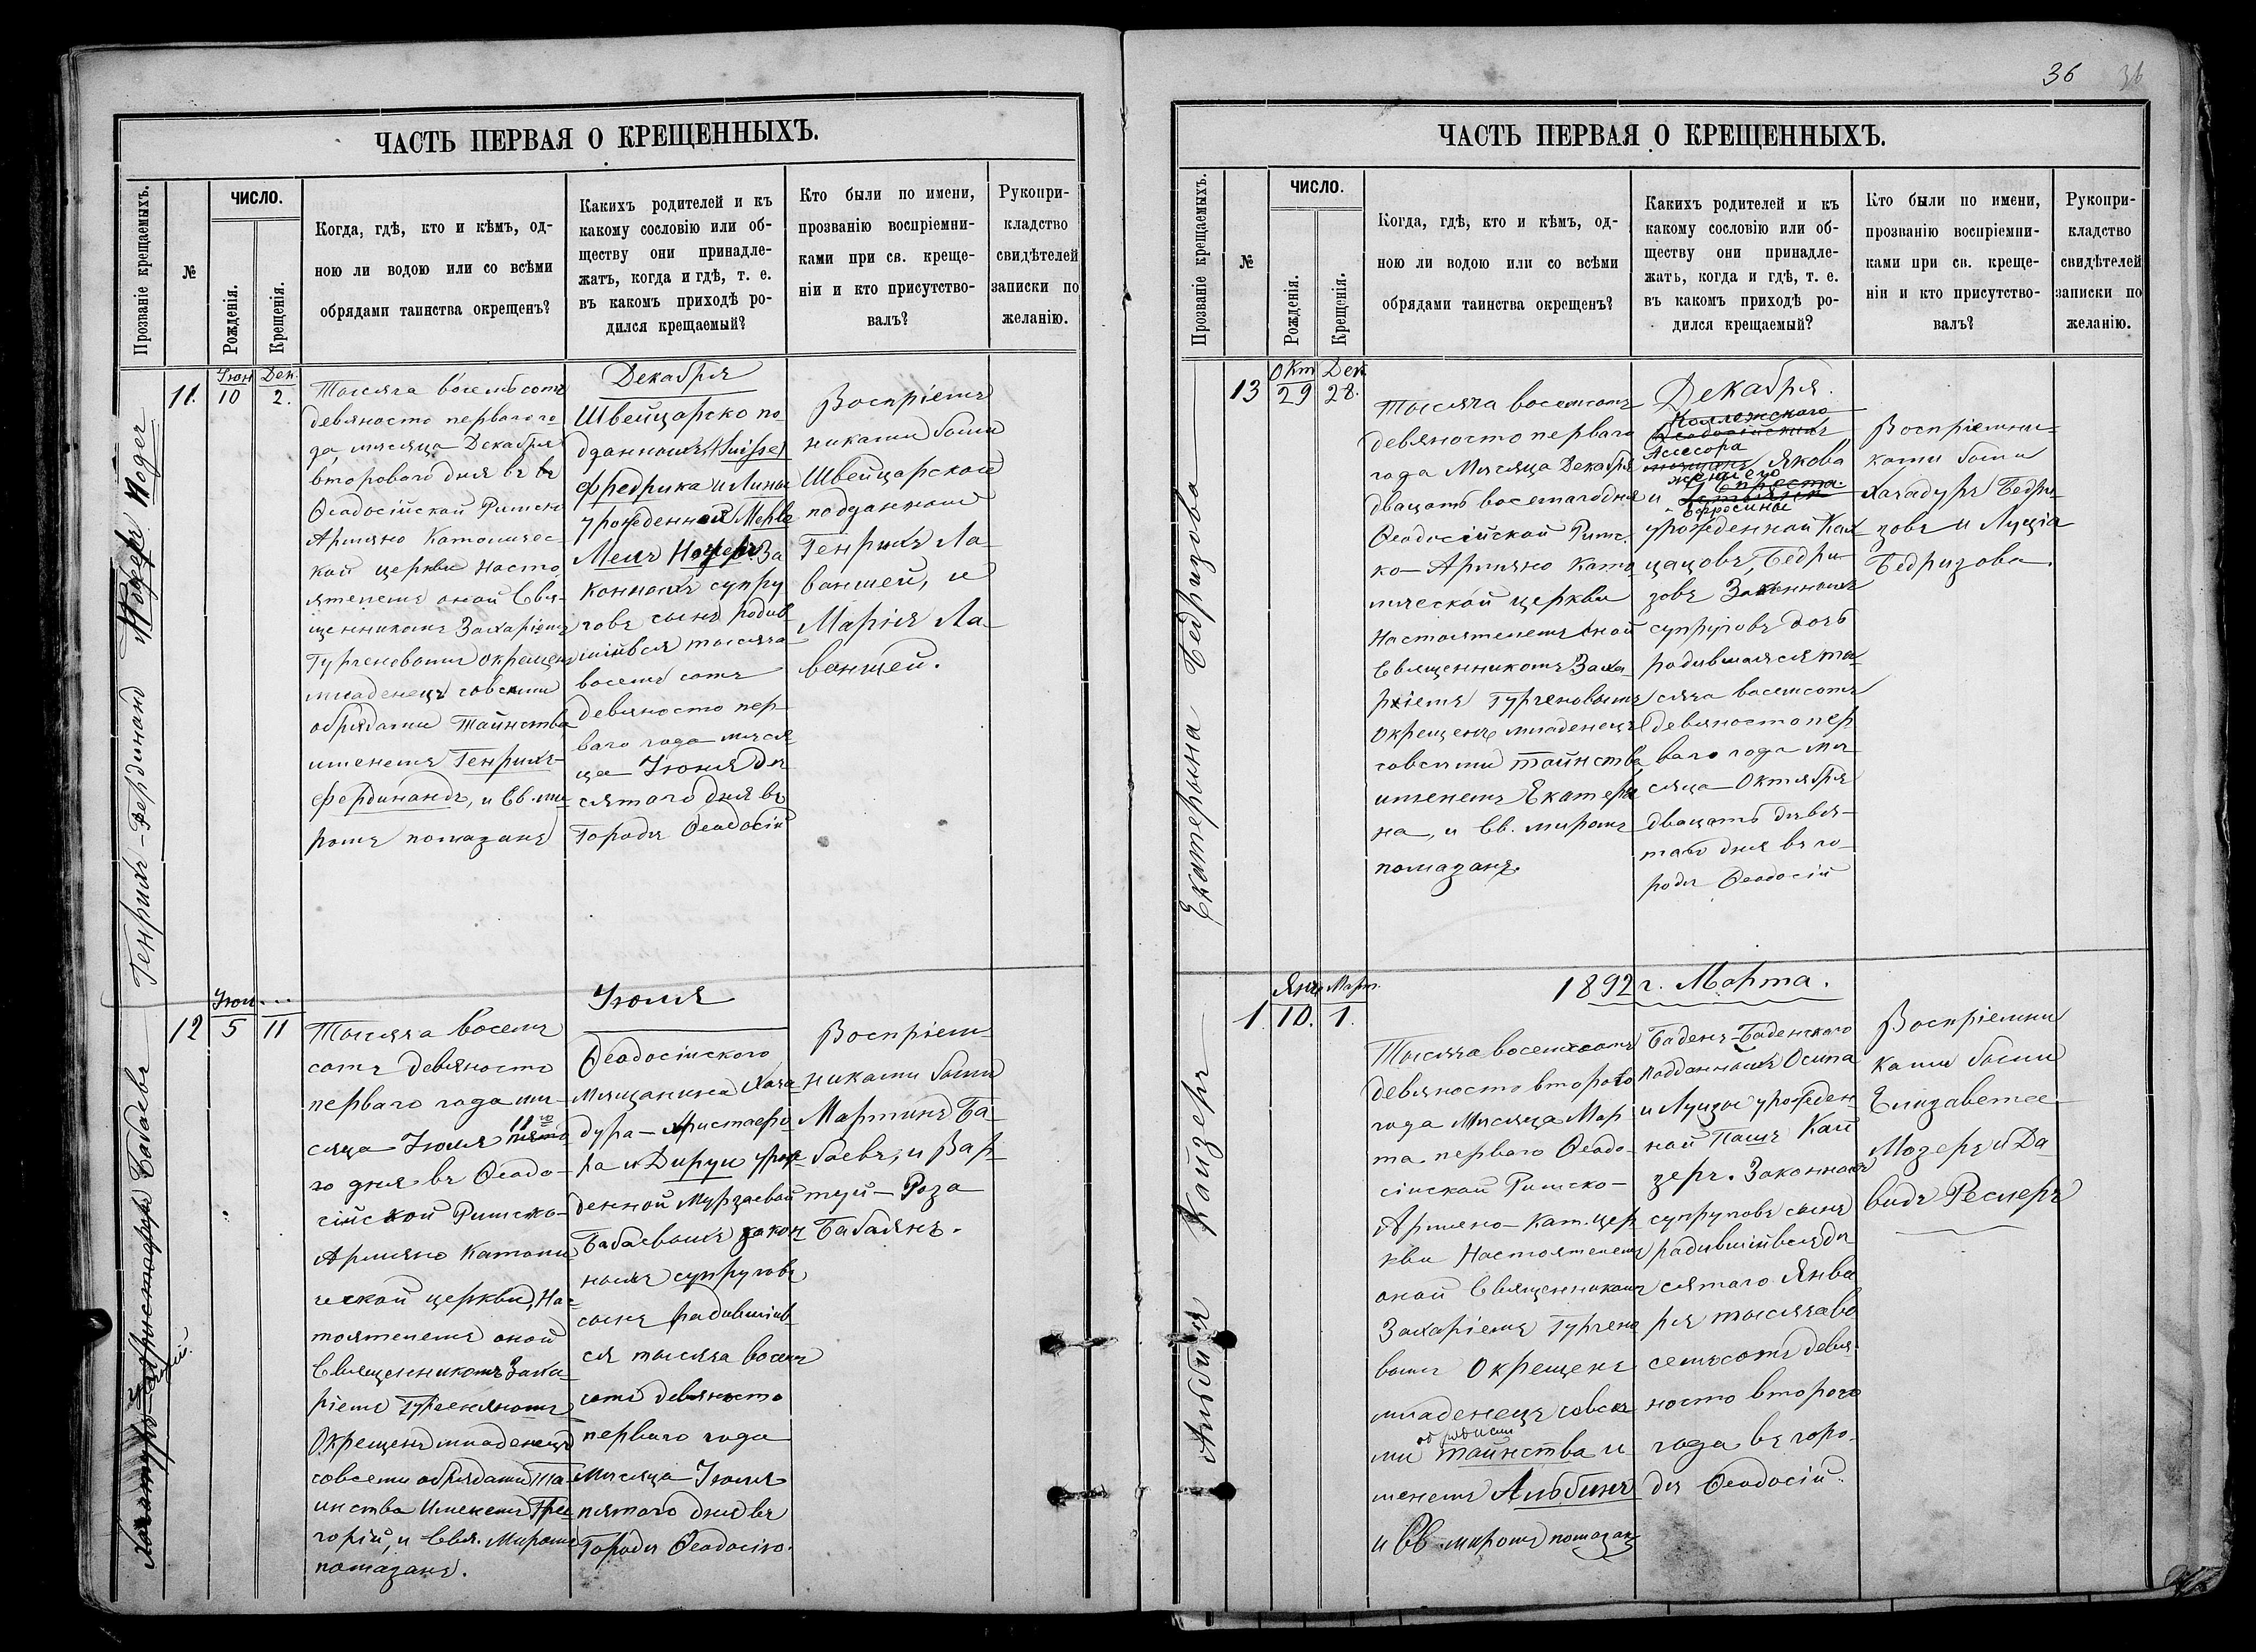 36 36
ЧАСТЬ ПЕРВАЯ О КРЕЩЕННЫХЪ.
Прозваніе крещаемыхъ.
№
ЧИСЛО.
Рожденія.
Крещенія.
Когда, гдѣ, кто и кѣмъ, од-
ною ли водою или со всѣми
обрядами таинства окрещенъ?
Какихъ родителей и къ
какому сословію или об-
ществу они принадле-
жатъ, когда и гдѣ, т. е.
въ какомъ приходѣ ро-
дился крещаемый?
Кто были по имени,
прозванію воспріемни-
ками при св. креще-
ніи и кто присутство-
валъ?
Рукопри-
кладство
свидѣтелей
записки по
желанію.
Генрихъ-Фердинанд Ножеръ Noger
11.
Іюн 10
Дек. 2.
Тысяча восемьсотъ
девяносто перваго го
да, мѣсяца Декабря
второваго дня въ въ
Ѳеодосійской Римско
Армяно Католичес-
кой церкви Насто
ятелемъ оной Свя-
щенникомъ Захаріемъ
Гургеновымъ окрещенъ
младенецъ совсеми
обрядами Таинства
именемъ Генрихъ-
Фердинандъ, и Св. ми
ромъ помазанъ
Декабря
Швейцарско по
дданныхъ (Suisse)
Фредрика и Лины
урожденной Мерве
Меит Ножеръ За
конныхъ супру
говъ сынъ родив
шійвся тысяча
восемь сотъ
девяносто пер
ваго года мѣся
ца Іюня де
сятаго дня въ
Городѣ Ѳеодосіи
Воспріемъ
никами были
Швейцарскои
подданнои
Генрихъ Ла-
ваншей, и
Марія Ла-
ваншей.
Григорій
Бабаевъ
12
Іюл. 5
11
Тысяча восемь
сотъ девяносто
перваго года мѣ
сяца Іюля 11го пято
го дня въ Ѳеодо-
сійской Римско-
Армяно Католи
ческой церкви, На-
тоятелемъ оной
Священникомъ Заха-
ріемъ Гургеновымъ
Окрещенъ младенецъ
совсеми обрядами Та-
инства Именемъ Гри
горій, и Свя. Миромъ
помазанъ.
Іюля
Ѳеодосійского
Мѣщанина Хача
дура-Христафо
ра и Дируи урож
денной Мурзаевой
Бабаевыхъ закон
ныхъ супруговъ
сынъ радившійв
ся тысяча восемь
сотъ девяносто
перваго года
Мѣсяца Іюля
пятаго дня въ
Городѣ Ѳеодосію.
Воспріем
никами были
Мартинъ Ба-
баевъ, и Вар-
туи-Роза
Бабаянъ.
ЧАСТЬ ПЕРВАЯ О КРЕЩЕННЫХЪ.
Прозваніе крещаемыхъ.
№
ЧИСЛО.
Рожденія.
Крещенія.
Когда, гдѣ, кто и кѣмъ, од-
ною ли водою или со всѣми
обрядами таинства окрещенъ?
Какихъ родителей и къ
какому сословію или об-
ществу они принадле-
жатъ, когда и гдѣ, т. е.
въ какомъ приходѣ ро-
дился крещаемый?
Кто были по имени,
прозванію воспріемни-
ками при св. креще-
ніи и кто присутство-
валъ?
Рукопри-
кладство
свидѣтелей
записки по
желанію.
Екатерына Бедризова
13
Окт 29
Дек. 28.
Тысяча восемсотъ
девяносто перваго
года Мѣсяца Декабря
двацатъ восемагодня
Ѳеодосійской Римс.
ко-Армяно Като
лической церкви
Настоятелемъ оной
Священникомъ Заха
ріемъ Гургеновымъ
Окрещенъ младенецъ
совсеми таинства
именемъ Екатери
на, и Св. миромъ
помазанъ.
Декабря.
Коллежского
Ассесора Якова
и жены его
Ефросиніе
урожденной Кал
цацовъ, Бедри
зовъ Законныхъ
супруговъ дочь
радившаяся ты
сяча восемсотъ
девяносто пер
ваго года мѣ
сяца Октября
двацатъ девя-
таго дня въ го-
родѣ Ѳеодосіи
Воспріемни
ками были
Хачадуръ Бедри
зовъ и Луціа
Бедризова.
1892 г. Марта.
Албинъ Кайзеръ
1.
Янв 10.
Март. 1.
Тысяча восемсотъ
девяносто второго
года Мѣсяца Мар
та перваго Ѳеодо-
сійской Римско-
Армяно-Кат. цер
кви Настоятелемъ
оной Священникомъ
Захаріемъ Гургено
вымъ Окрещенъ
младенецъ совсе
ми обрядами таинства и
менемъ Альбинъ
и Св. миромъ помазанъ
Баденъ-Баденского
подданныхъ Осипа
и Луизы урожден-
ной Паше Кай
зеръ. Законныхъ
супруговъ сынъ
радившійвся де
сятаго Янва
ря тысяча во
семьсотъ девя-
носто второго
года въ горо-
дѣ Ѳеодосіи.
Воспріемни
ками были
Елизавета
Мозеръ и Да
видъ Реслеръ